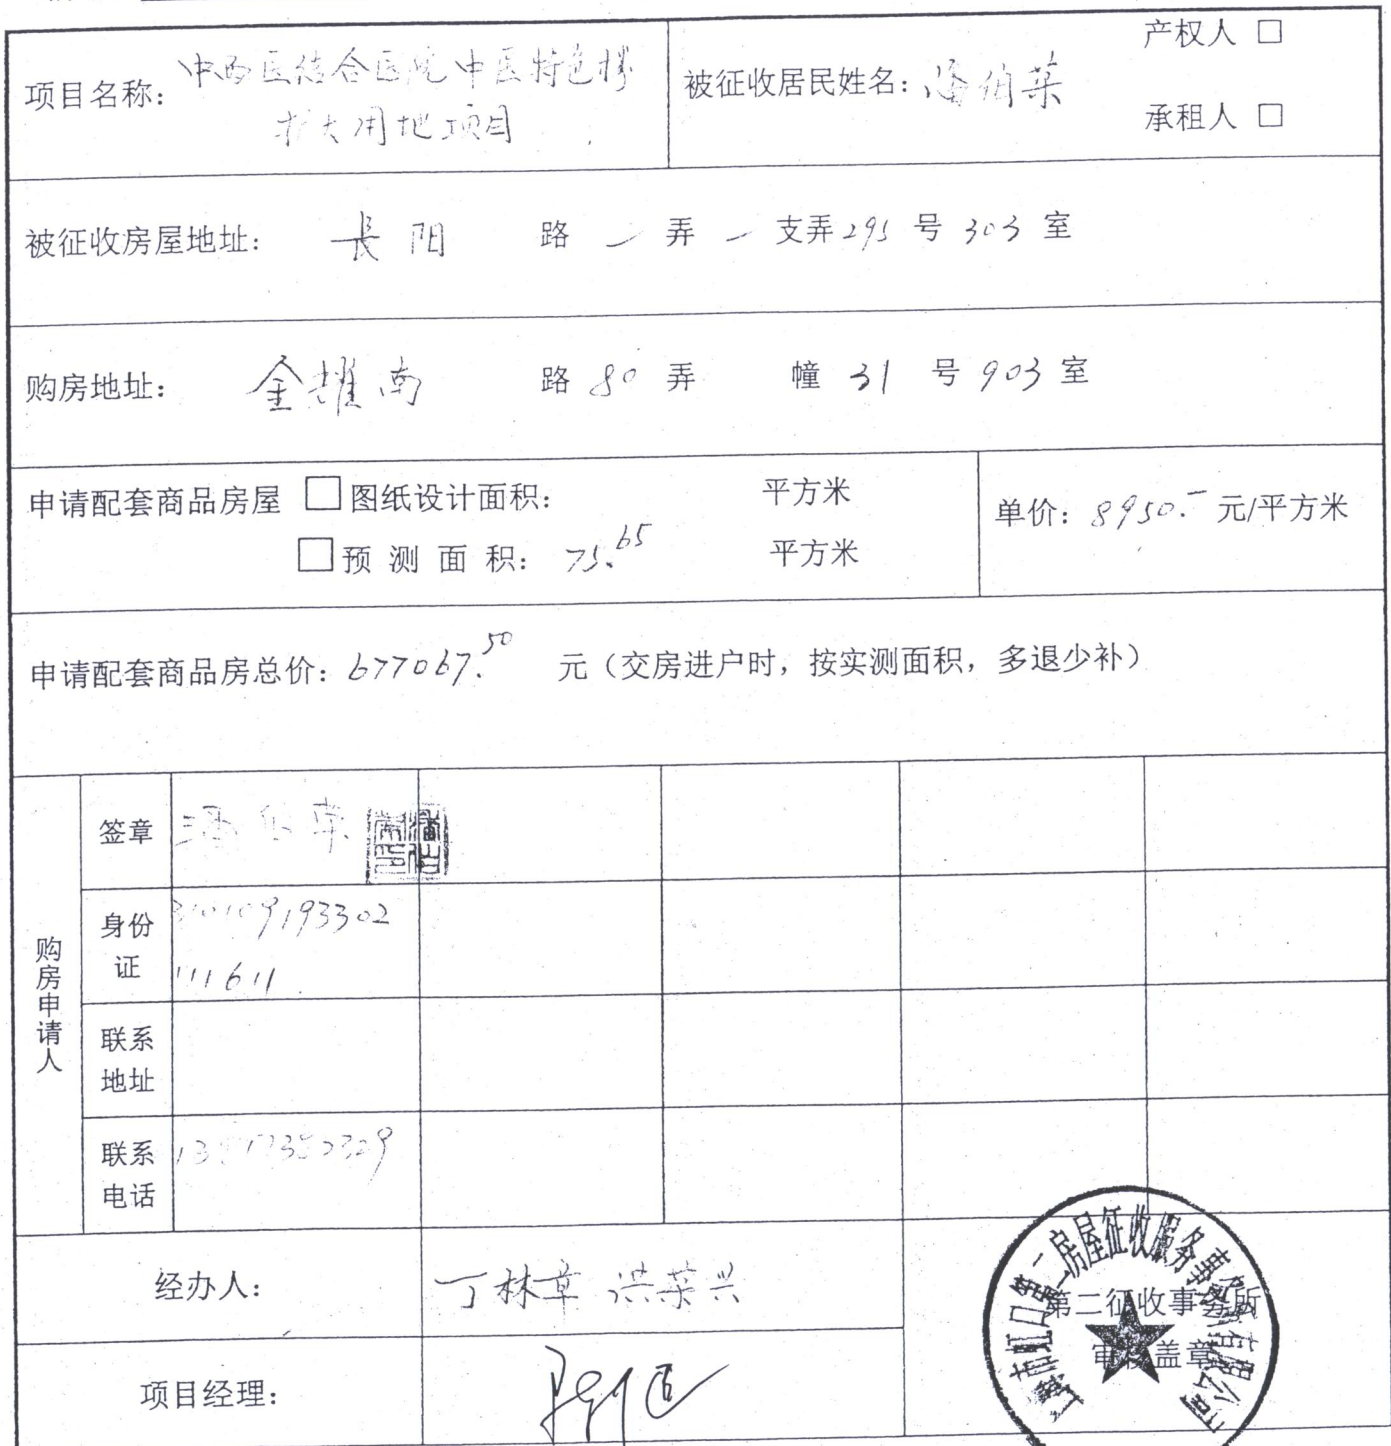 项目名称：中西医结合医院中医特色楼
扩大用地项目
被征收居民姓名：潘伯荣
产权人 □
承租人 □
被征收房屋地址： 长阳 路 / 弄 / 支弄 295 号 303 室
购房地址： 金耀南 路 80 弄 幢 31 号 903 室
申请配套商品房屋 □图纸设计面积： 平方米
□预 测 面 积：75.65 平方米
单价：8950.- 元/平方米
申请配套商品房总价：677067.50 元（交房进户时，按实测面积，多退少补）
购房申请人
签章 潘伯荣
身份证 310109193302
111611
联系地址
联系电话
经办人： 丁林章 洪荣兴
第二征收事务所
审核盖章
项目经理：
上海市虹口第二房屋征收服务事务所有限公司